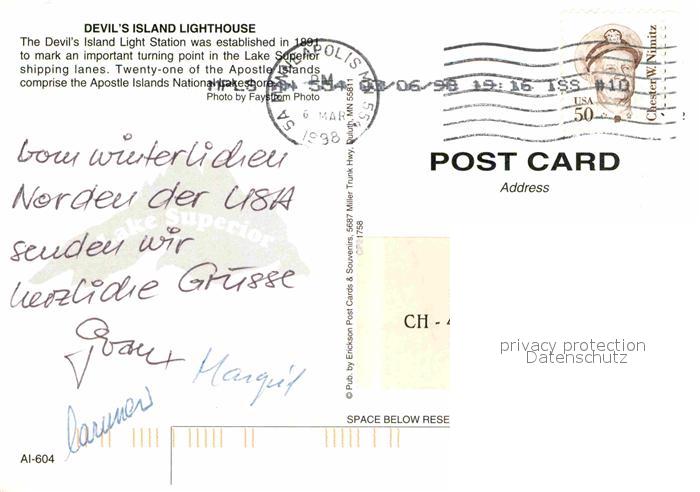 DEVIL'S ISLAND LIGHTHOUSE
The Devil's Island Light Station was established in 1891
to mark an important turning point in the Lake Superior
shipping lanes. Twenty-one of the Apostle Islands
comprise the Apostle Islands National Lakeshore.
Photo by Faystrom Photo
MINNEAPOLIS MN 554
PM
6 MAR
1998
MPLS MN 554 03/06/98 19:16 ISS #10
USA
50
Chester W. Nimitz
POST CARD
Address
vom winterlichen
Norden der USA
senden wir
herzliche Grüsse
Margrit
Carmen
Lake Superior
© Pub. by Erickson Post Cards & Souvenirs, 5687 Miller Trunk Hwy, Duluth, MN 55811
CP01758
CH - 4
privacy protection
Datenschutz
SPACE BELOW RESE
AI-604